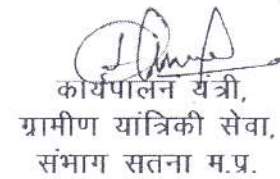 कार्यपालन यंत्री,
ग्रामीण यांत्रिकी सेवा,
संभाग सतना म.प्र.